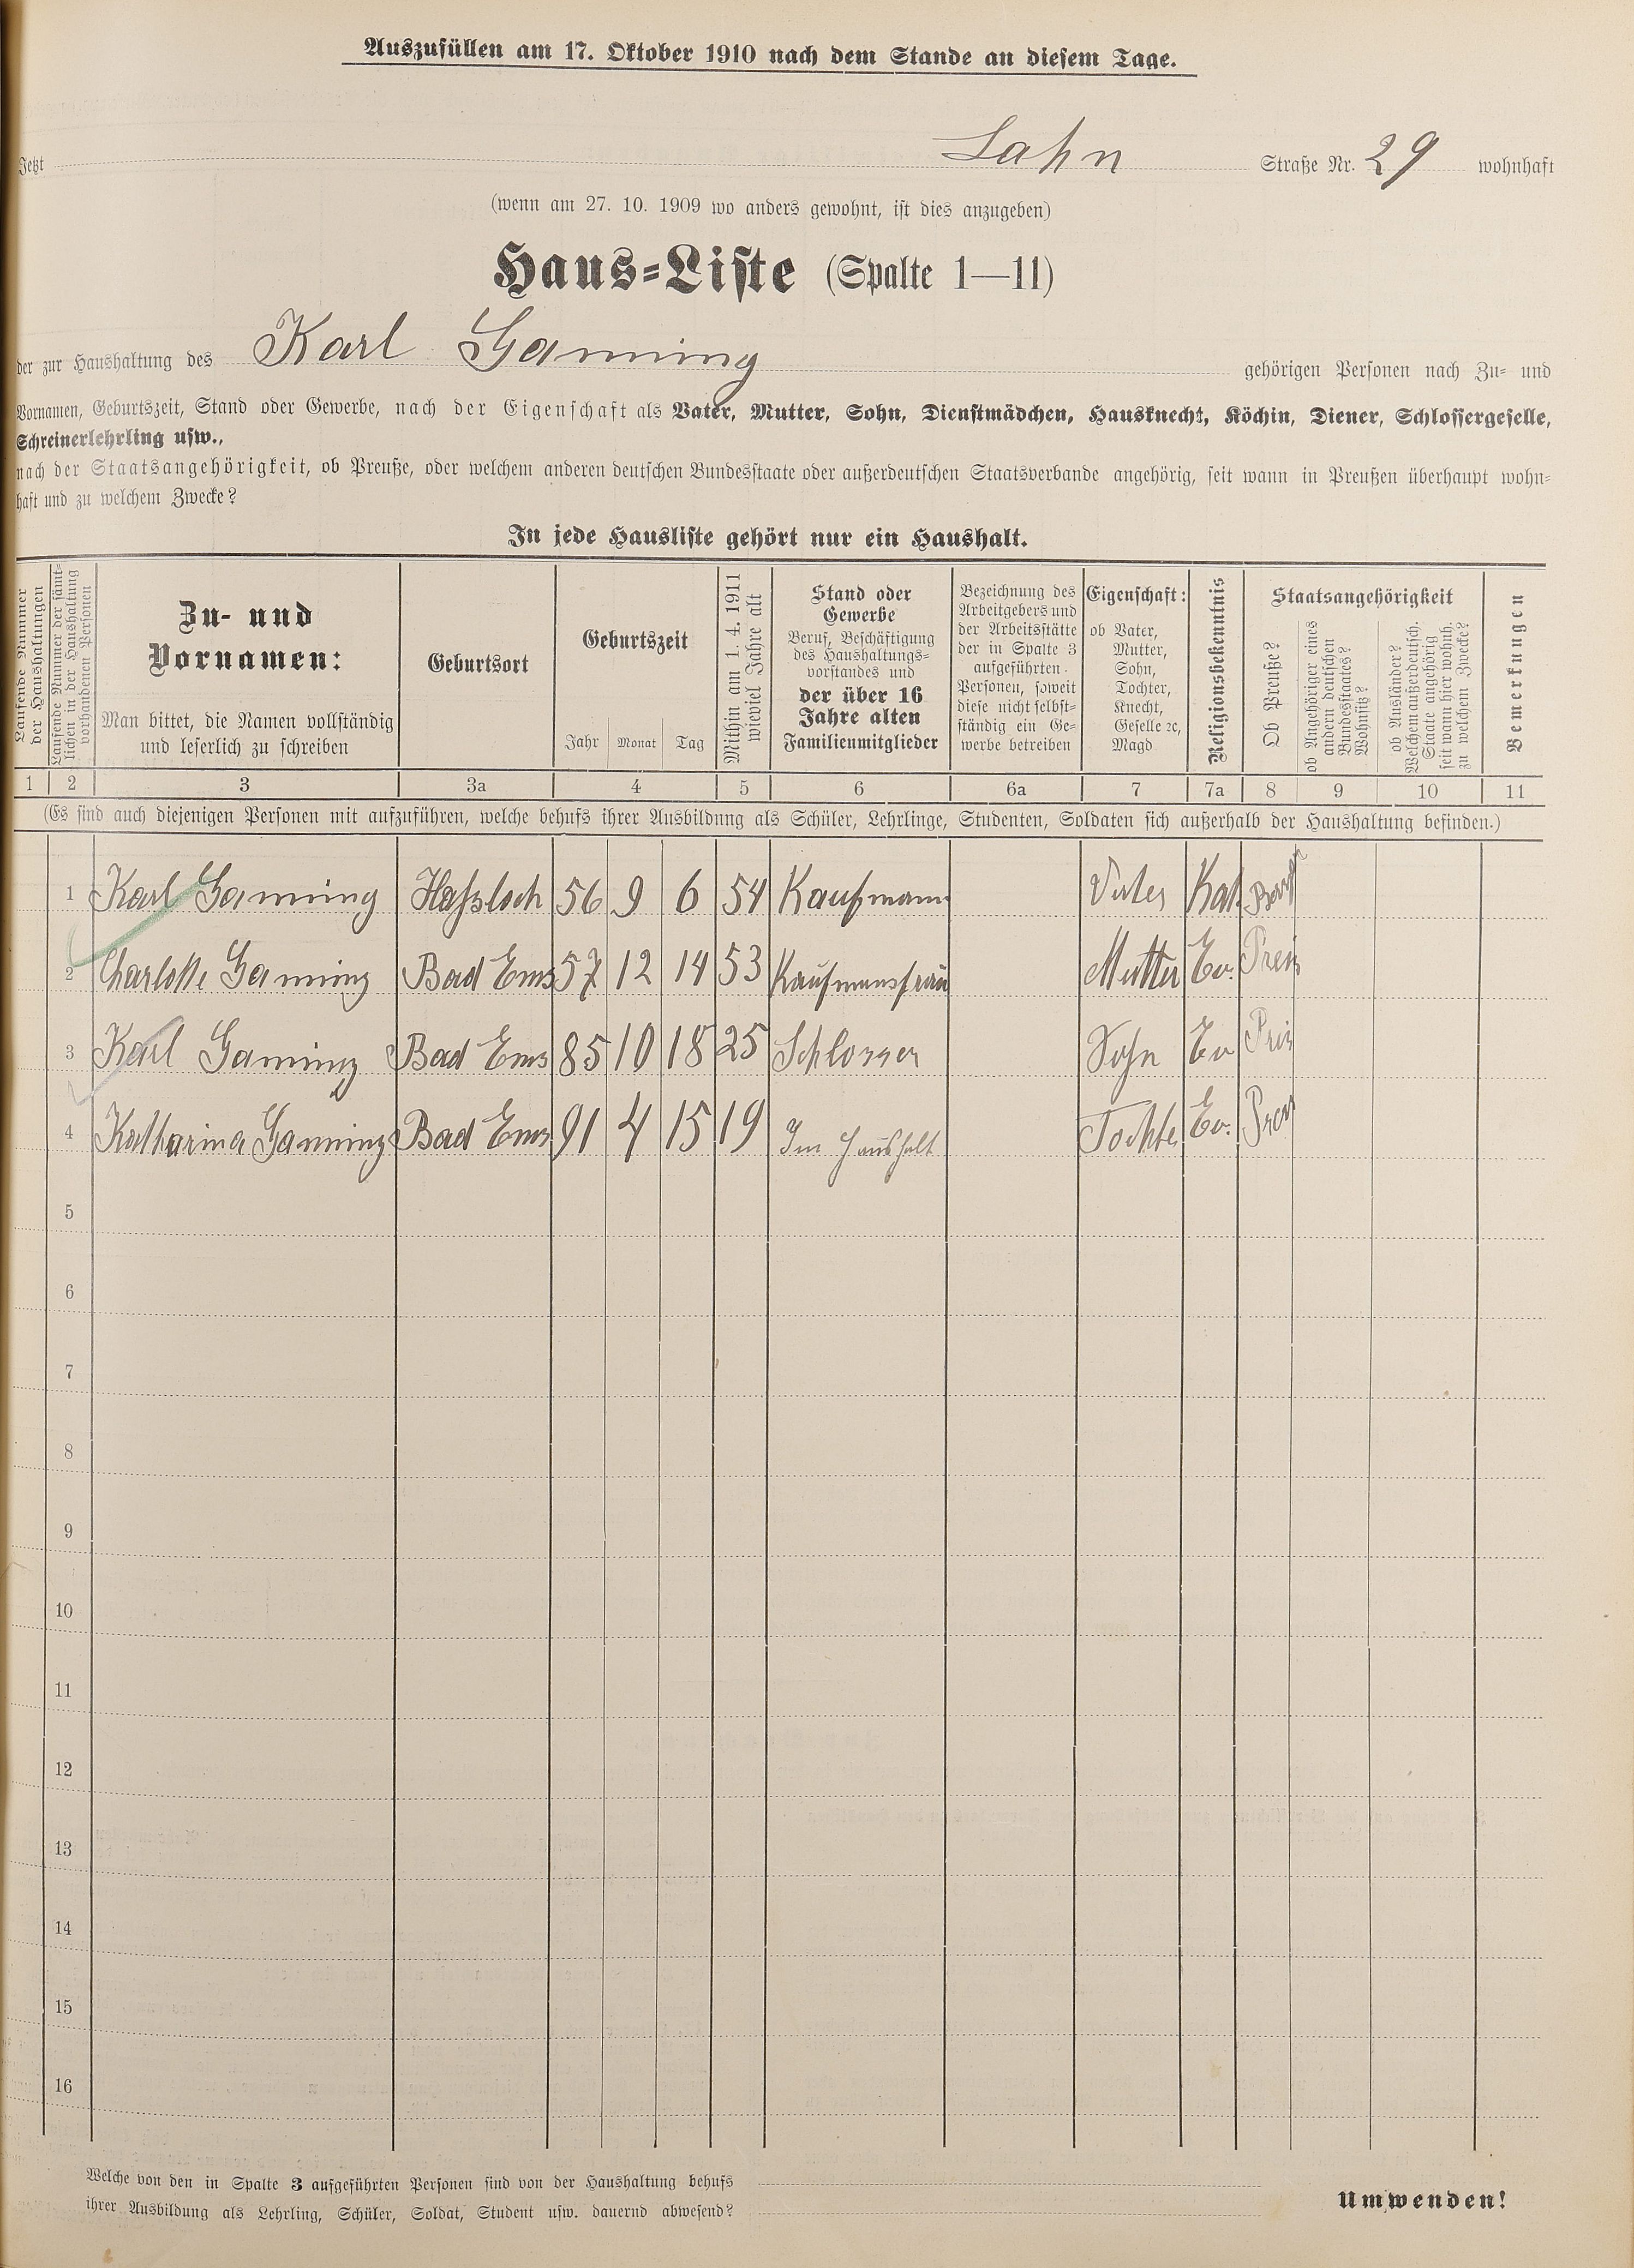 Auszufüllen am 17. Oktober 1910 nach dem Stande an diesem Tage.
Jetzt Lahn Straße Nr. 29 wohnhaft
(wenn am 27. 10. 1909 wo anders gewohnt, ist dies anzugeben)
Haus-Liste (Spalte 1—11)
der zur Haushaltung des Karl Ganning gehörigen Personen nach Zu- und
Vornamen, Geburtszeit, Stand oder Gewerbe, nach der Eigenschaft als Vater, Mutter, Sohn, Dienstmädchen, Hausknecht, Köchin, Diener, Schlossergeselle,
Schreinerlehrling usw.,
nach der Staatsangehörigkeit, ob Preuße, oder welchem anderen deutschen Bundesstaate oder außerdeutschen Staatsverbande angehörig, seit wann in Preußen überhaupt wohn-
haft und zu welchem Zwecke?
In jede Hausliste gehört nur ein Haushalt.
Laufende Nummer
der Haushaltungen
Laufende Nummer der sämt-
lichen in der Haushaltung
vorhandenen Personen
Zu- und
Vornamen:
Man bittet, die Namen vollständig
und leserlich zu schreiben
Geburtsort
Geburtszeit
Jahr Monat Tag
Mithin am 1. 4. 1911
wieviel Jahre alt
Stand oder
Gewerbe
Beruf, Beschäftigung
des Haushaltungs-
vorstandes und
der über 16
Jahre alten
Familienmitglieder
Bezeichnung des
Arbeitgebers und
der Arbeitsstätte
der in Spalte 3
aufgeführten
Personen, soweit
diese nicht selbst-
ständig ein Ge-
werbe betreiben
Eigenschaft:
ob Vater,
Mutter,
Sohn,
Tochter,
Knecht,
Geselle ꝛc,
Magd
Religionsbekenntnis
Staatsangehörigkeit
Ob Preuße?
ob Angehöriger eines
andern deutschen
Bundesstaates?
Wohnsitz?
ob Ausländer?
Welchem außerdeutsch.
Staate angehörig
seit wann hier wohnh.
zu welchem Zwecke?
Bemerkungen
1 2 3 3a 4 5 6 6a 7 7a 8 9 10 11
(Es sind auch diejenigen Personen mit aufzuführen, welche behufs ihrer Ausbildung als Schüler, Lehrlinge, Studenten, Soldaten sich außerhalb der Haushaltung befinden.)
1 Karl Ganning Haßloch 56 9 6 54 Kaufmann Vater Kat.
2 Charlotte Ganning Bad Ems 57 12 14 53 Kaufmansfrau Mutter Ev. Preus
3 Karl Ganning Bad Ems 85 10 18 25 Schlosser Sohn Ev
4 Katharina Ganning Bad Ems 91 4 15 19 Im Haushalt Tochte Ev. Preus
5
6
7
8
9
10
11
12
13
14
15
16
Welche von den in Spalte 3 aufgeführten Personen sind von der Haushaltung behufs
ihrer Ausbildung als Lehrling, Schüler, Soldat, Student usw. dauernd abwesend?
Umwenden!